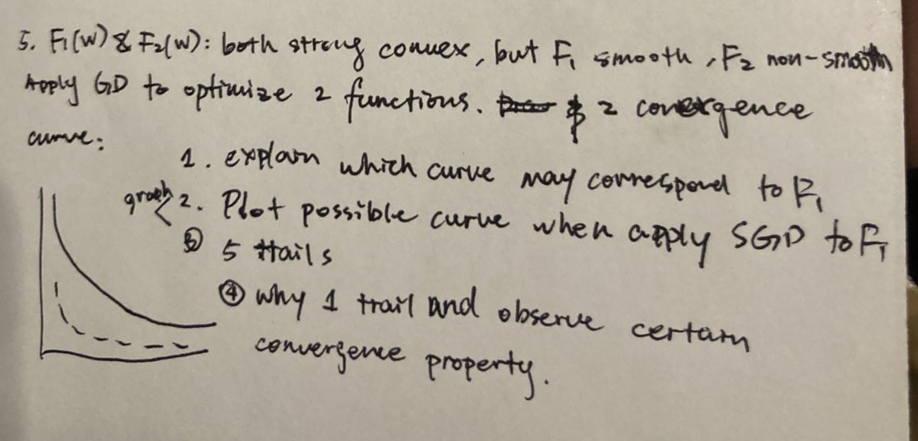 5. F₁(w) & F₂(w): both strong convex, but F₁ smooth, F₂ non-smooth
Apply GD to optimize 2 functions. 2 convergence
curve:
1. explain which curve may correspond to F₁
graph 2. Plot possible curve when apply SGD to F₁
③ 5 ttails
④ why 1 trail and observe certain
convergence property.